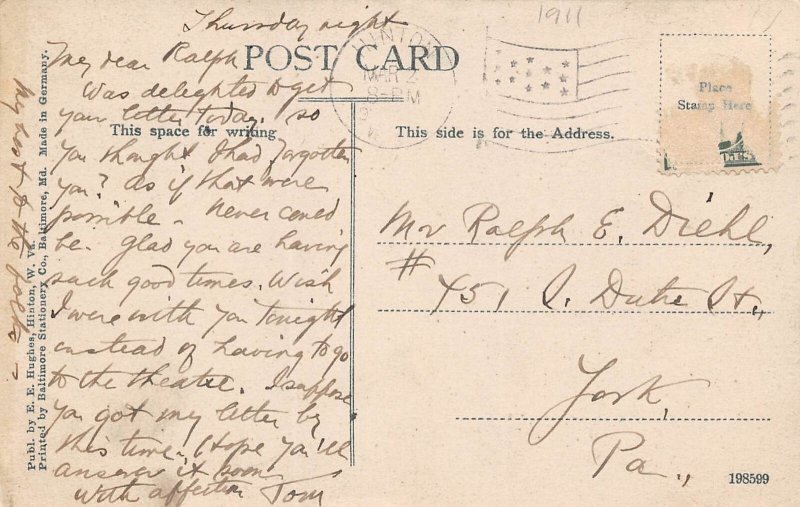 Thursday night
My dear Ralph
Was delighted to get
your letter today. So
you thought I had forgotten
you? as if that were
possible - never could
be. Glad you are having
such good times. Wish
I were with you tonight
instead of having to go
to the theatre. I suppose
you got my letter by
this time. I hope you'll
answer it soon
With affection Tom
My best to the folks
Publ. by E. E. Hughes, Hinton, W. Va.
Printed by Baltimore Stationery Co., Baltimore, Md. Made in Germany.
POST CARD
This space for writing
This side is for the Address.
1911
HINTON
MAR 2
8-PM
W.
Place
Stamp Here
Mr Ralph E. Diehl,
# 451 S. Duke St.,
York,
Pa.,
198599